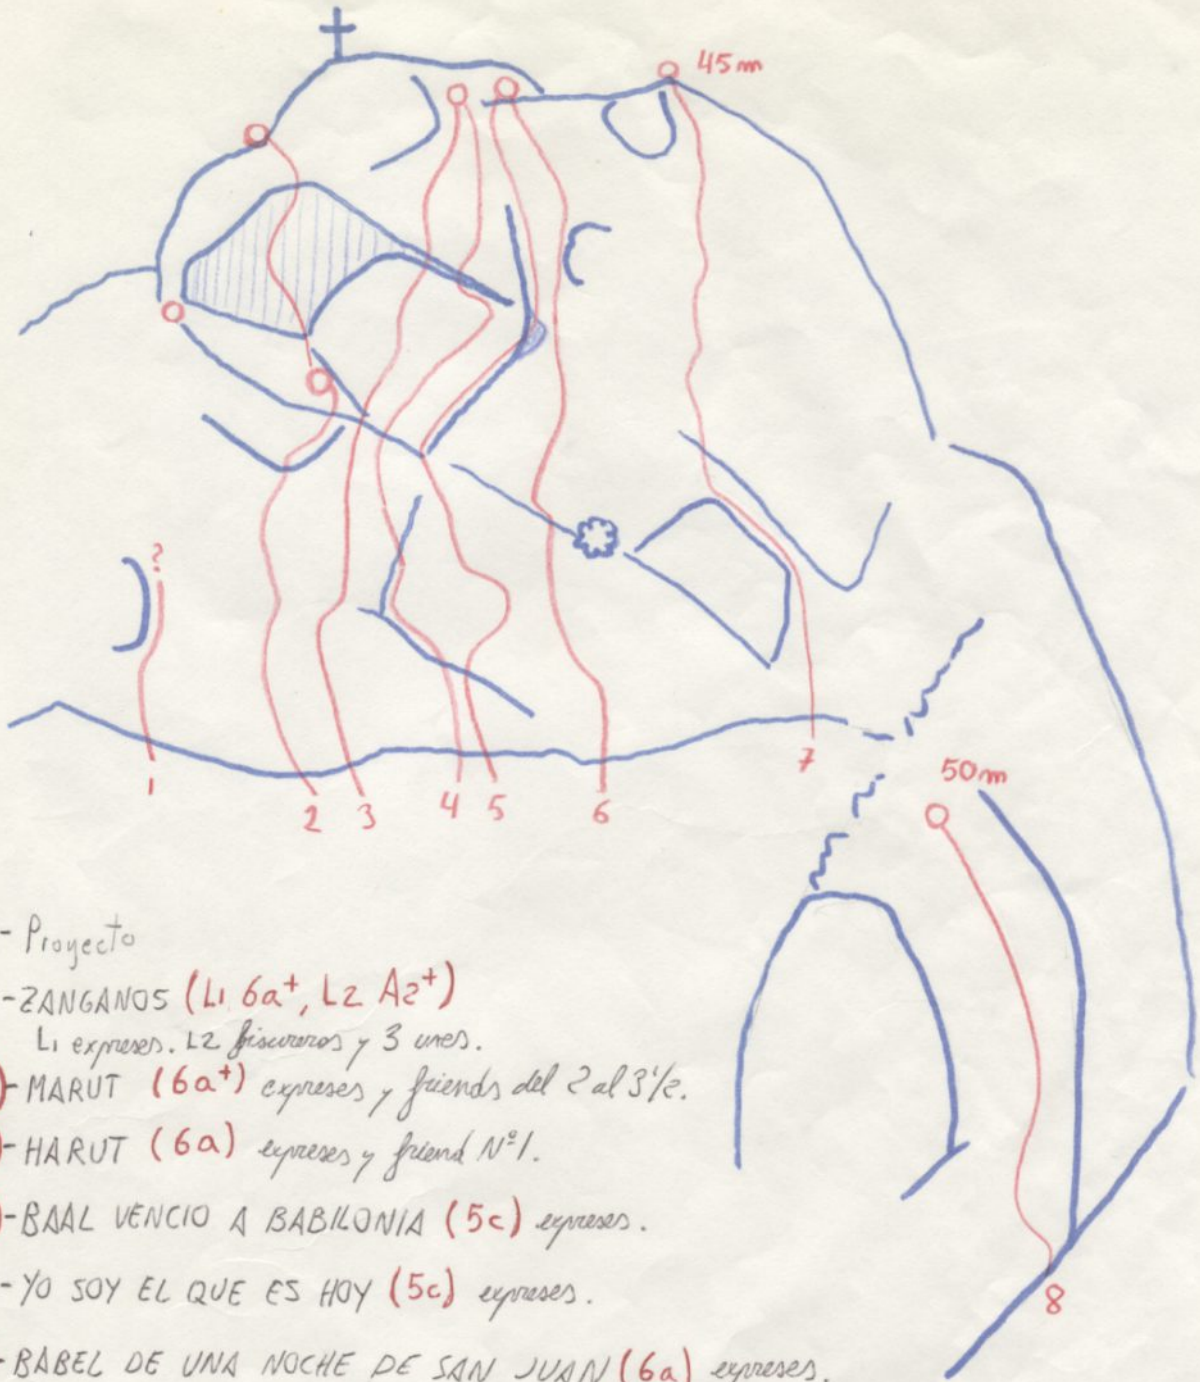 45m
?
1
2
3
4
5
6
7
50m
8
- Proyecto
- ZANGANOS (L1 6a+, L2 A2+)
L1 expreses. L2 fisureros y 3 unes.
)- MARUT (6a+) expreses y friends del 2 al 3½.
)- HARUT (6a) expreses y friend Nº1.
)- BAAL VENCIO A BABILONIA (5c) expreses.
- YO SOY EL QUE ES HOY (5c) expreses.
- BABEL DE UNA NOCHE DE SAN JUAN (6a) expreses.